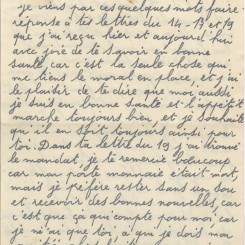 Je viens par ces quelques mots faire
réponse à tes lettres du 14-13 et 19
que j'ai reçu hier et aujourd'hui
avec joie de te savoir en bonne
santé, car c'est la seule chose qui
me tiens le moral en place, et j'ai
le plaisir de te dire que moi aussi
je suis en bonne santé et l'appétit
marche toujours bien, et je souhaite
qu'il en soit toujours ainsi pour
toi. Dans ta lettre du 19 j'ai trouvé
le mandat, je te remercie beaucoup
car mon porte monnaie était mort,
mais je préfère rester sans un sou
et recevoir des bonnes nouvelles, car
c'est que ça qui compte pour moi, car
je n'ai que toi, à qui je dois mon